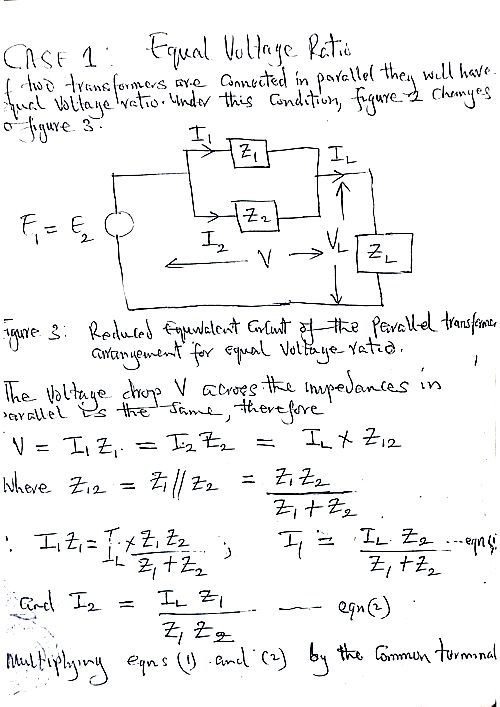 CASE 1: Equal Voltage Ratio
f two transformers are connected in parallel they will have
qual voltage ratio. Under this condition, figure 2 changes
o figure 3.
I₁ Z₁ I_L
E₁ = E₂ Z₂
I₂ V V_L Z_L
igure 3: Reduced Equivalent Circuit of the Parallel transformer
arrangement for equal voltage ratio.
The voltage drop V across the impedances in
parallel is the same, therefore
V = I₁Z₁ = I₂Z₂ = I_L × Z₁₂
Where Z₁₂ = Z₁//Z₂ = Z₁Z₂ / Z₁+Z₂
∴ I₁Z₁ = I_L × Z₁Z₂ / Z₁+Z₂ ; I₁ = I_L Z₂ / Z₁+Z₂ ---eqn(1)
and I₂ = I_L Z₁ / Z₁ Z₂ --- eqn(2)
Multiplying eqns (1) and (2) by the common terminal